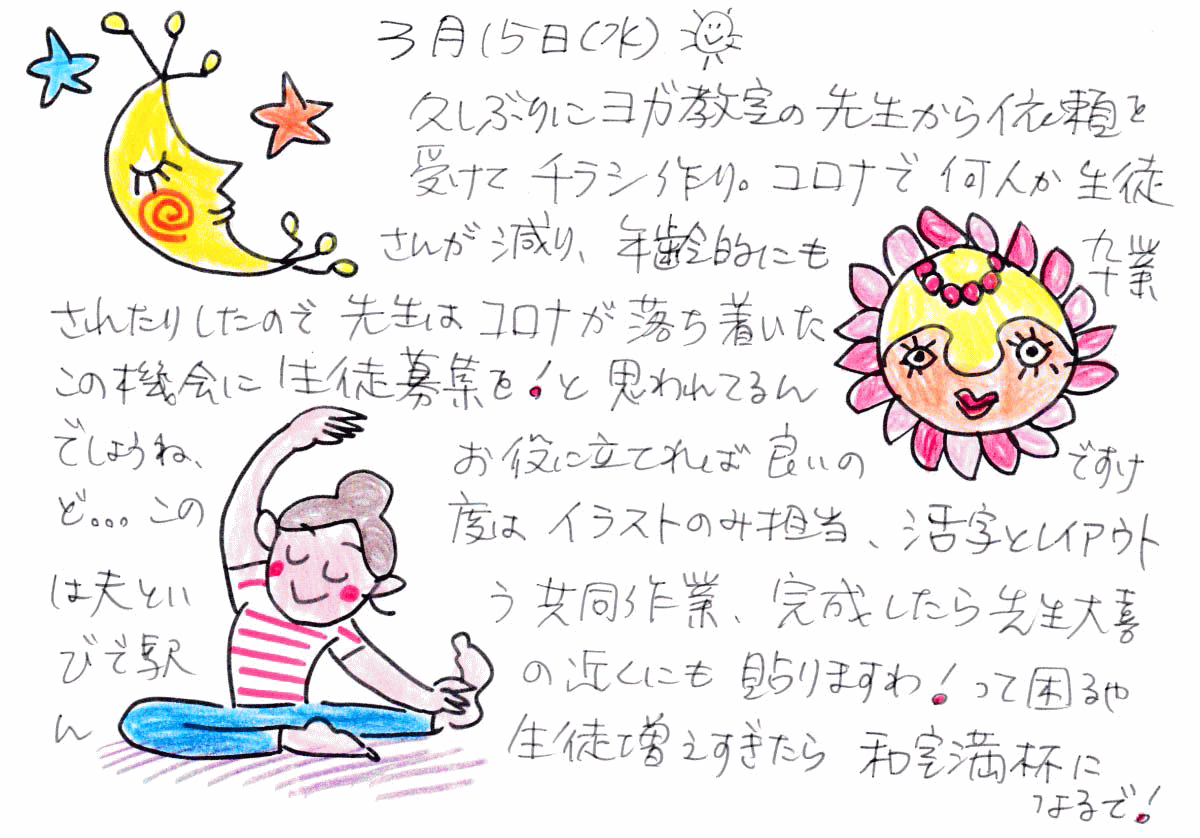 3月15日(水)
久しぶりにヨガ教室の先生から依頼を
受けてチラシ作り。コロナで何人か生徒
さんが減り、年齢的にも卒業
されたりしたので先生はコロナが落ち着いた
この機会に生徒募集を!と思われてるん
でしょうね、お役に立てれば良いのですけ
ど...この度はイラストのみ担当、活字とレイアウト
は夫という共同作業、完成したら先生大喜
びで駅の近くにも貼りますわ!って困るや
ん生徒増えすぎたら和室満杯に
なるで!